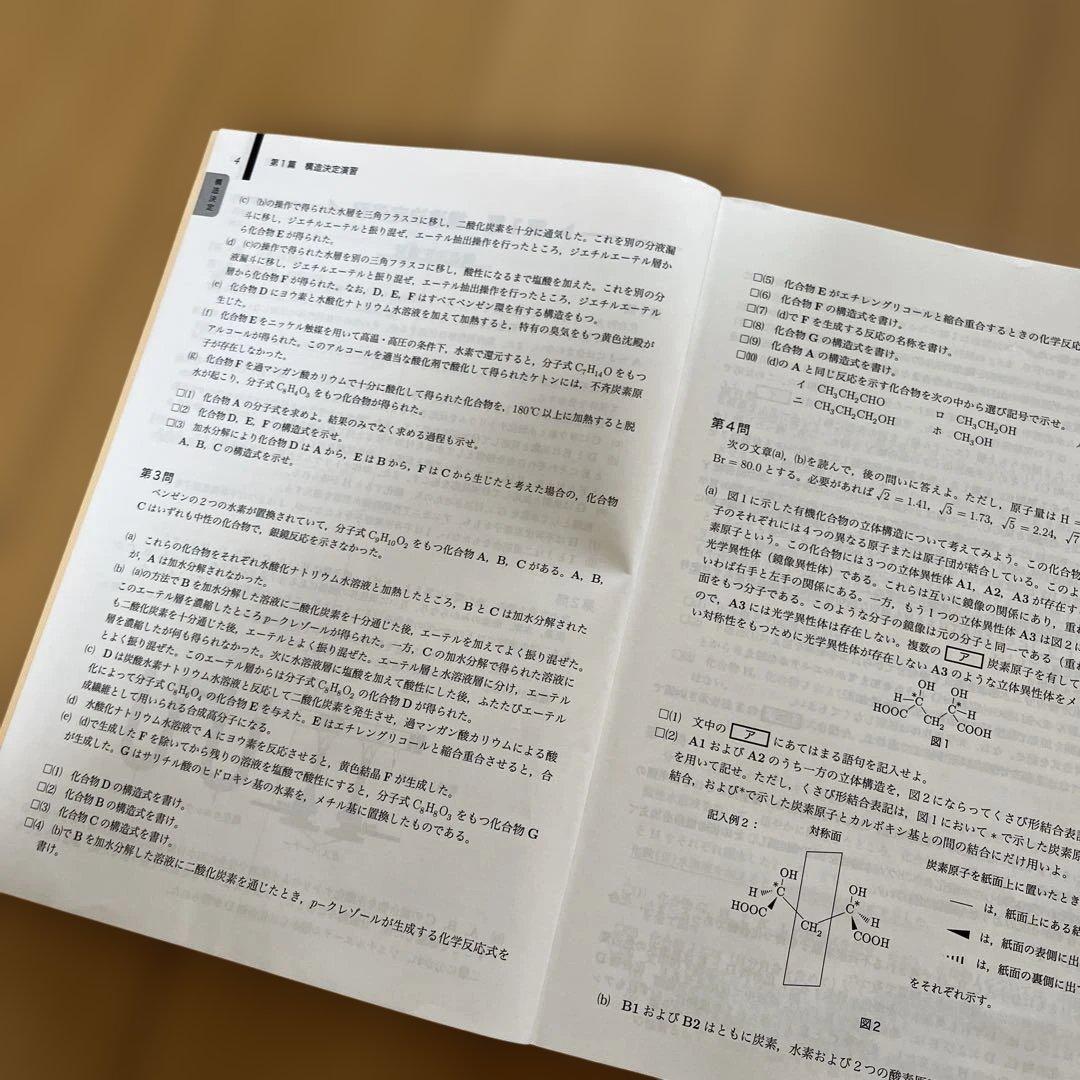 4
第1篇 構造決定演習
構造決定
(c) (b)の操作で得られた水層を三角フラスコに移し，二酸化炭素を十分に通気した。これを別の分液漏
斗に移し，ジエチルエーテルと振り混ぜ，エーテル抽出操作を行ったところ，ジエチルエーテル層か
ら化合物Eが得られた。
(d) (c)の操作で得られた水層を別の三角フラスコに移し，酸性になるまで塩酸を加えた。これを別の分
液漏斗に移し，ジエチルエーテルと振り混ぜ，エーテル抽出操作を行ったところ，ジエチルエーテル
層から化合物Fが得られた。なお，D，E，Fはすべてベンゼン環を有する構造をもつ。
(e) 化合物Dにヨウ素と水酸化ナトリウム水溶液を加えて加熱すると，特有の臭気をもつ黄色沈殿が
生じた。
(f) 化合物Eをニッケル触媒を用いて高温・高圧の条件下，水素で還元すると，分子式C₇H₁₄Oをもつ
アルコールが得られた。このアルコールを適当な酸化剤で酸化して得られたケトンには，不斉炭素原
子が存在しなかった。
(g) 化合物Fを過マンガン酸カリウムで十分に酸化して得られた化合物を，180℃以上に加熱すると脱
水が起こり，分子式C₈H₄O₃をもつ化合物が得られた。
□(1) 化合物Aの分子式を求めよ。結果のみでなく求める過程も示せ。
□(2) 化合物D，E，Fの構造式を示せ。
□(3) 加水分解により化合物DはAから，EはBから，FはCから生じたと考えた場合の，化合物
A，B，Cの構造式を示せ。
第3問
ベンゼンの2つの水素が置換されていて，分子式C₉H₁₀O₂をもつ化合物A，B，Cがある。A，B，
Cはいずれも中性の化合物で，銀鏡反応を示さなかった。
(a) これらの化合物をそれぞれ水酸化ナトリウム水溶液と加熱したところ，BとCは加水分解された
が，Aは加水分解されなかった。
(b) (a)の方法でBを加水分解した溶液に二酸化炭素を十分通じた後，エーテルを加えてよく振り混ぜた。
このエーテル層を濃縮したところp-クレゾールが得られた。一方，Cの加水分解で得られた溶液に
も二酸化炭素を十分通じた後，エーテルとよく振り混ぜた。エーテル層と水溶液層に分け，エーテル
層を濃縮したが何も得られなかった。次に水溶液層に塩酸を加えて酸性にした後，ふたたびエーテル
とよく振り混ぜた。このエーテル層からは分子式C₈H₈O₂の化合物Dが得られた。
(c) Dは炭酸水素ナトリウム水溶液と反応して二酸化炭素を発生させ，過マンガン酸カリウムによる酸
化によって分子式C₈H₆O₄の化合物Eを与えた。Eはエチレングリコールと縮合重合させると，合
成繊維として用いられる合成高分子になる。
(d) 水酸化ナトリウム水溶液でAにヨウ素を反応させると，黄色結晶Fが生成した。
(e) (d)で生成したFを除いてから残りの溶液を塩酸で酸性にすると，分子式C₈H₈O₃をもつ化合物G
が生成した。Gはサリチル酸のヒドロキシ基の水素を，メチル基に置換したものである。
□(1) 化合物Dの構造式を書け。
□(2) 化合物Bの構造式を書け。
□(3) 化合物Cの構造式を書け。
□(4) (b)でBを加水分解した溶液に二酸化炭素を通じたとき，p-クレゾールが生成する化学反応式を
書け。
□(5) 化合物Eがエチレングリコールと縮合重合するときの化学反応
□(6) 化合物Fの構造式を書け。
□(7) (d)でFを生成する反応の名称を書け。
□(8) 化合物Gの構造式を書け。
□(9) 化合物Aの構造式を書け。
□(10) (d)のAと同じ反応を示す化合物を次の中から選び記号で示せ。
イ CH₃CH₂CHO ロ CH₃CH₂OH
ニ CH₃CH₂CH₂OH ホ CH₃OH
第4問
次の文章(a)，(b)を読んで，後の問いに答えよ。ただし，原子量はH＝
Br＝80.0とする。必要があれば√2＝1.41，√3＝1.73，√5＝2.24，√7
(a) 図1に示した有機化合物の立体構造について考えてみよう。この化合物
子のそれぞれには4つの異なる原子または原子団が結合している。このよ
素原子という。この化合物には3つの立体異性体A1，A2，A3が存在す
光学異性体（鏡像異性体）である。これらは互いに鏡像の関係にあり，重ね
いわば右手と左手の関係にある。一方，もう1つの立体異性体A3は図2に
面をもつ分子である。このような分子の鏡像は元の分子と同一である（重ね
ので，A3には光学異性体は存在しない。複数の ア 炭素原子を有して
い対称性をもつために光学異性体が存在しないA3のような立体異性体をメ
OH OH
H-C* *C-H
HOOC CH₂ COOH
図1
□(1) 文中の ア にあてはまる語句を記入せよ。
□(2) A1およびA2のうち一方の立体構造を，図2にならってくさび形結合表記
を用いて記せ。ただし，くさび形結合表記は，図1において*で示した炭素原
結合，および*で示した炭素原子とカルボキシ基との間の結合にだけ用いよ。
記入例2： 対称面
炭素原子を紙面上に置いたとき
は，紙面上にある結
は，紙面の表側に出
は，紙面の裏側に出
をそれぞれ示す。
OH OH
H C* C* H
HOOC CH₂ COOH
図2
(b) B1およびB2はともに炭素，水素および2つの酸素原